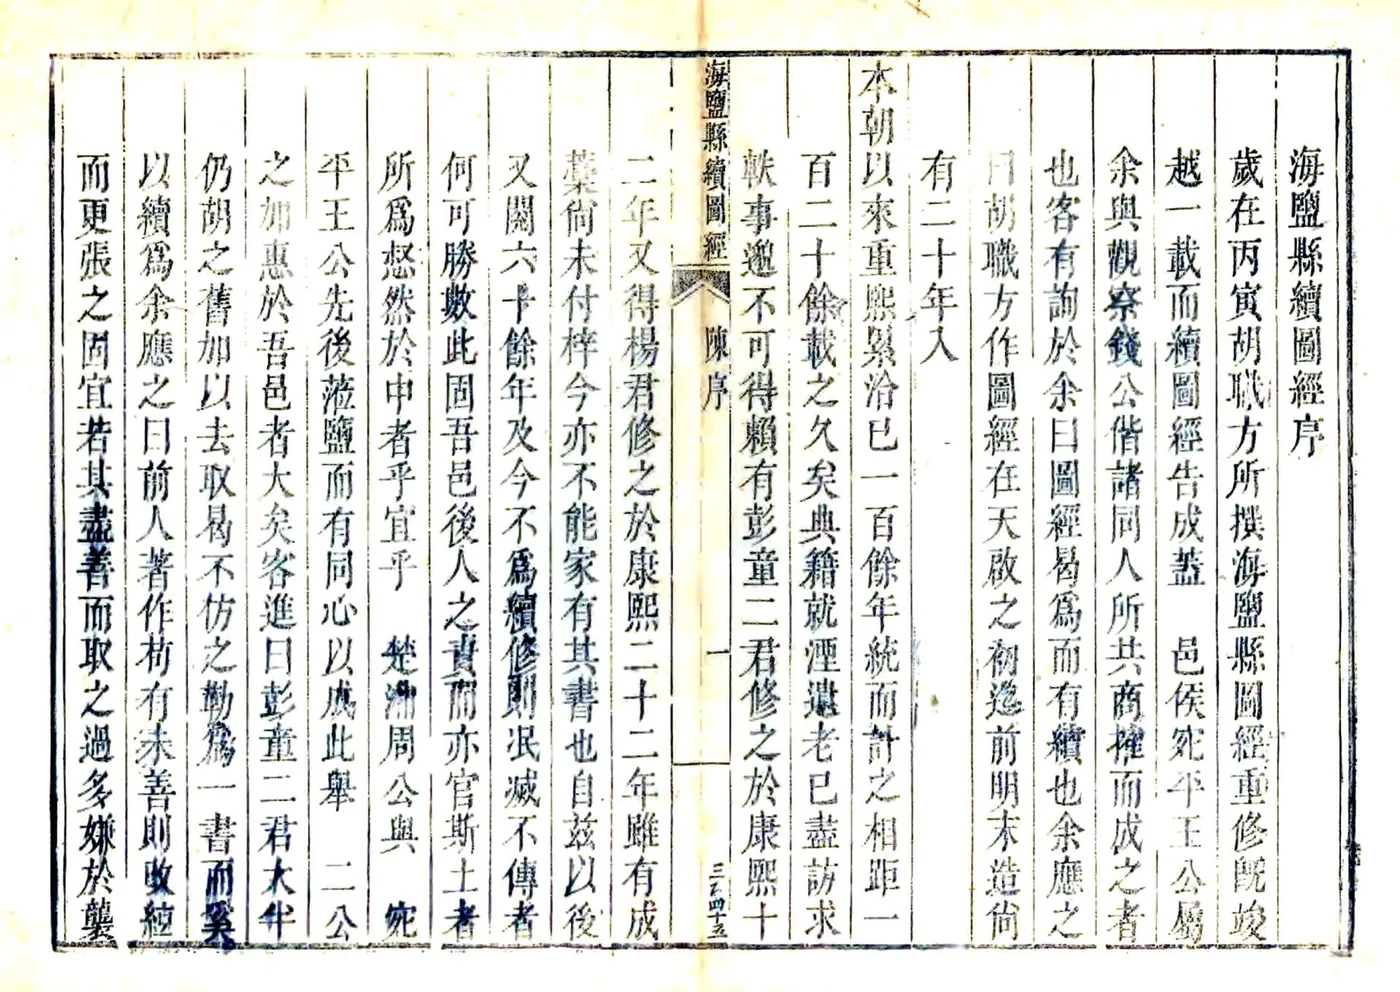 海鹽縣續圖經序
歲在丙寅胡職方所撰海鹽縣圖經重修既竣
越一載而續圖經告成蓋　邑侯宛平王公屬
余與觀察錢公偕諸同人所共商搉而成之者
也客有詢於余曰圖經曷為而有續也余應之
曰胡職方作圖經在天啟之初迄前明末造尚
有二十年入
本朝以來重熙累洽已一百餘年統而計之相距一
百二十餘載之久矣典籍就湮遺老已盡訪求
軼事邈不可得賴有彭童二君修之於康熙十
海鹽縣續圖經
陳序
一
二年又得楊君修之於康熙二十二年雖有成
藁尚未付梓今亦不能家有其書也自茲以後
又閱六十餘年及今不為續修則泯滅不傳者
何可勝數此固吾邑後人之責而亦官斯土者
所為惄然於中者乎宜乎　楚湘周公與　宛
平王公先後蒞鹽而有同心以成此舉　二公
之加惠於吾邑者大矣客進曰彭童二君大半
仍胡之舊加以去取曷不仿之勒為一書而奚
以續為余應之曰前人著作苟有未善則改絃
而更張之固宜若其盡善而取之過多嫌於襲